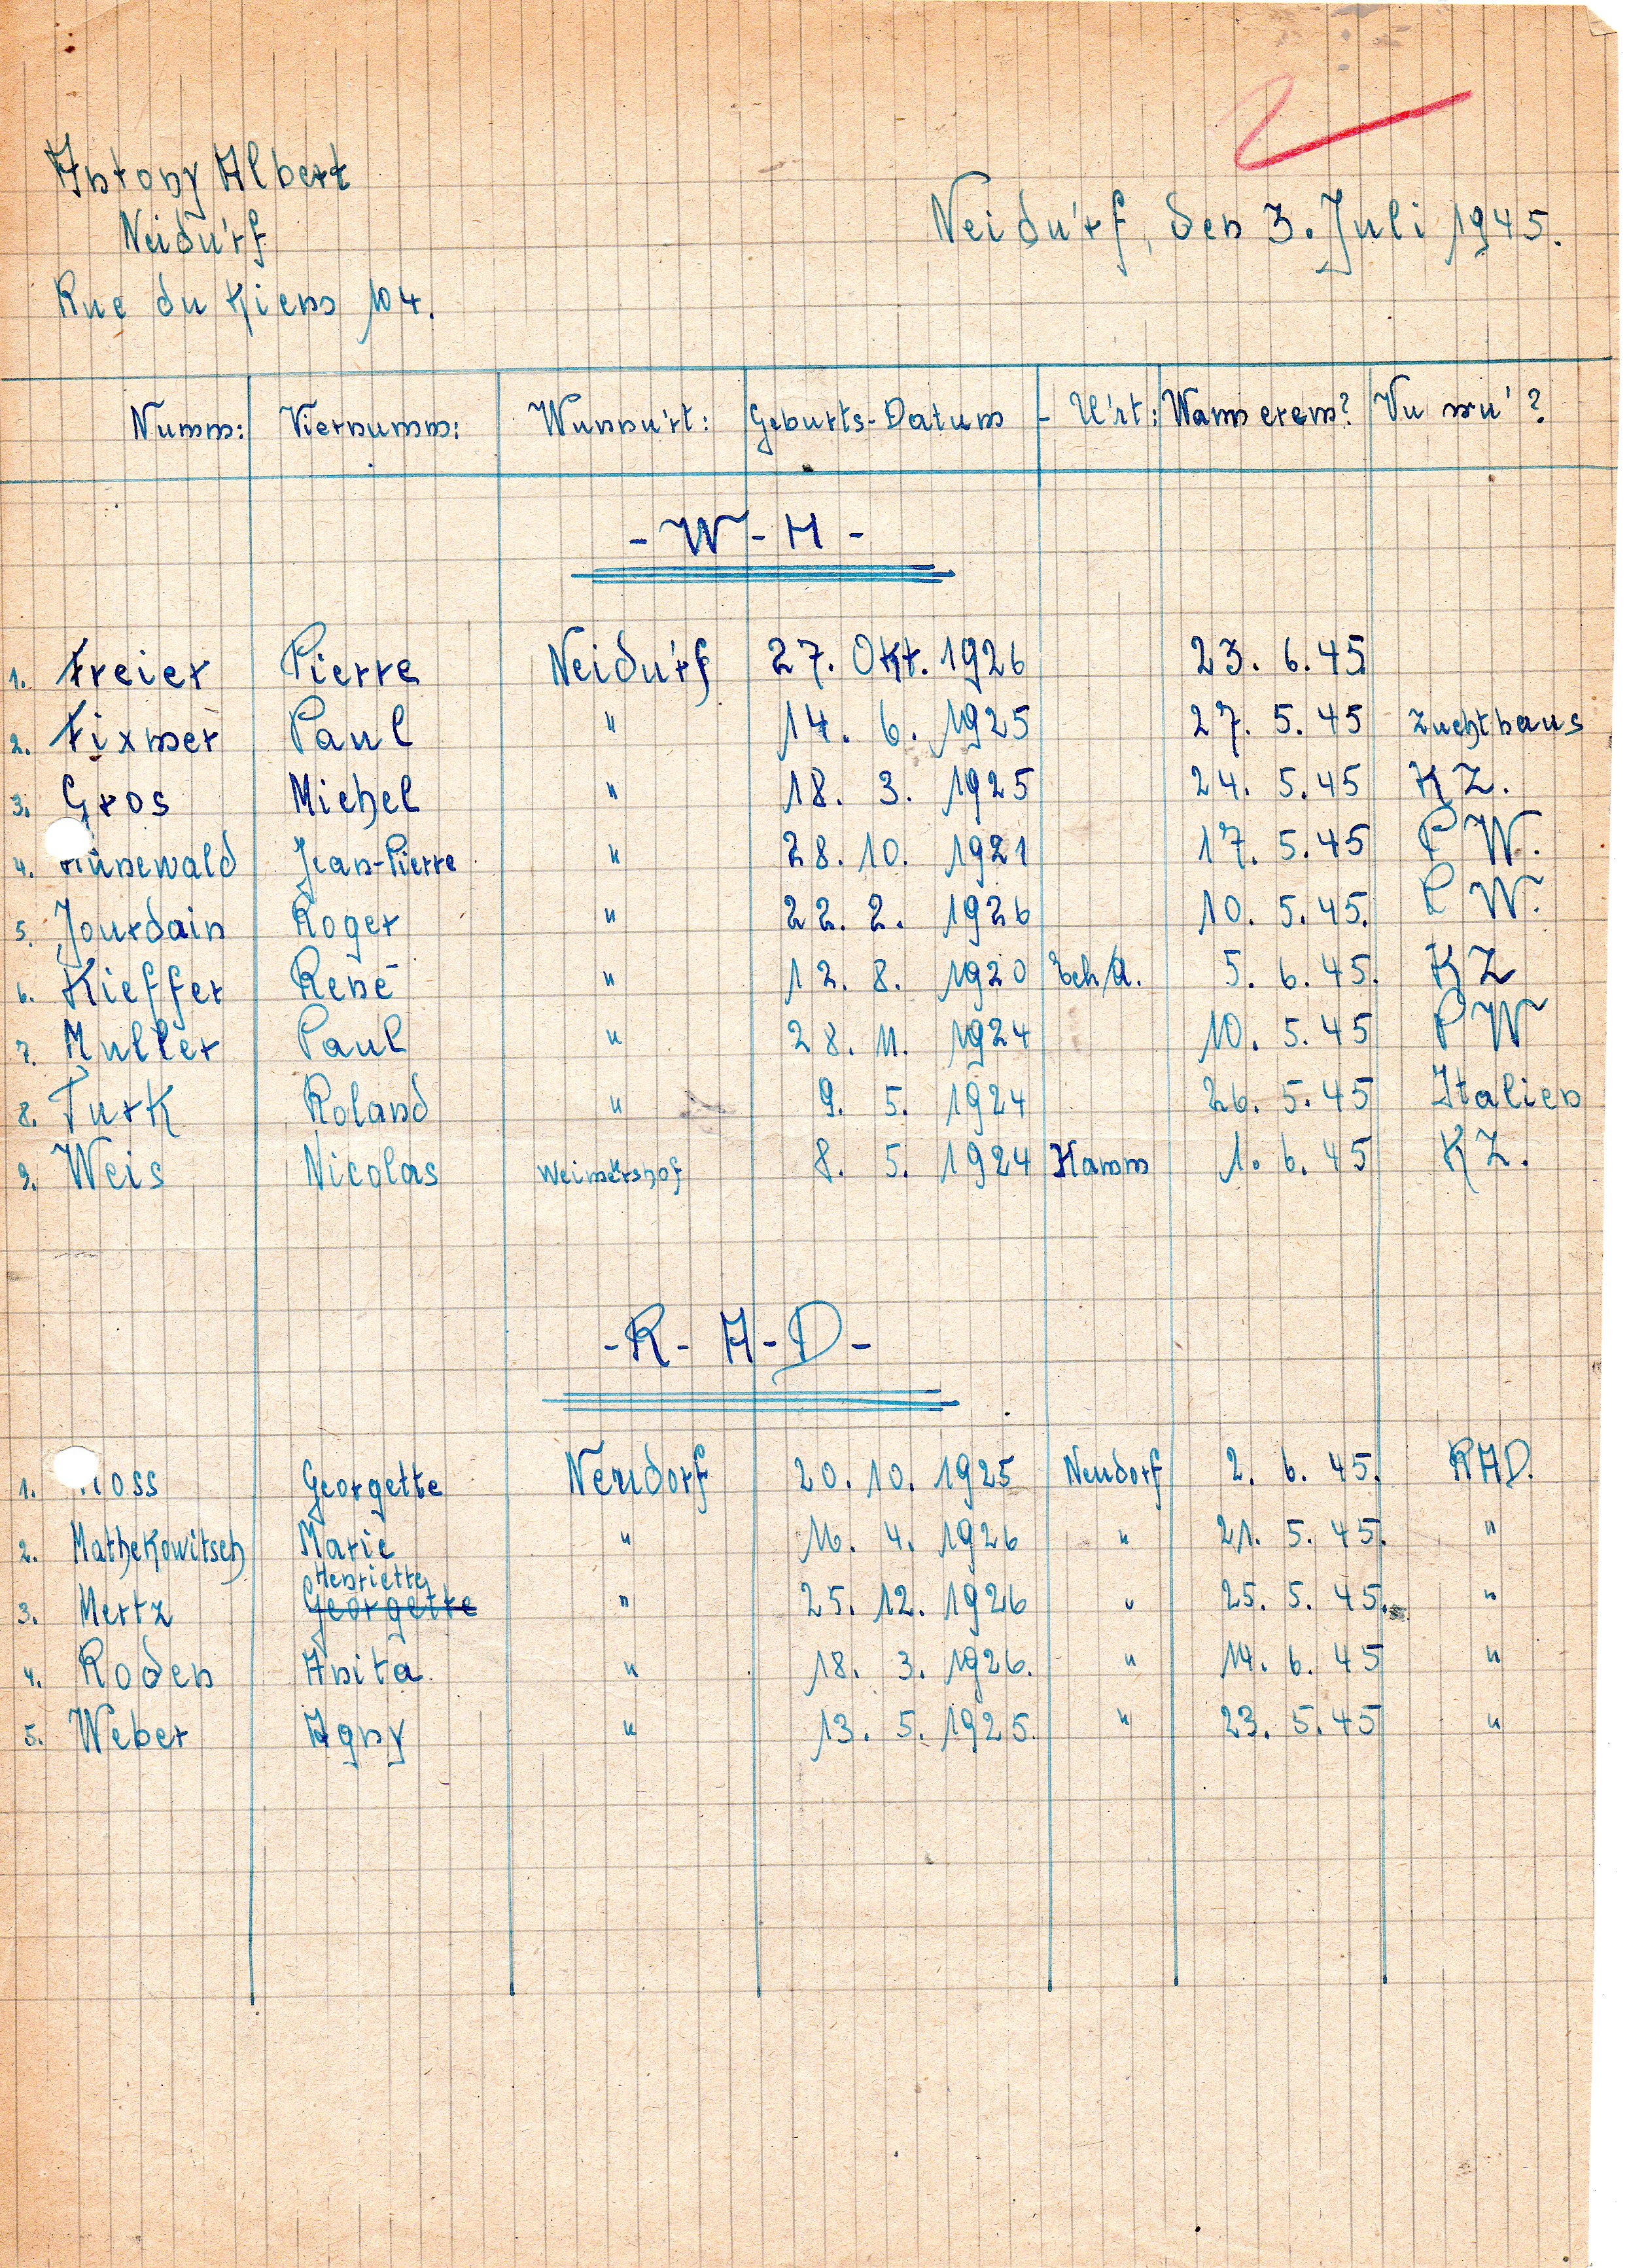 Antony Albert
Neidu'rf
Neidu'rf, den 3. Juli 1945.
Rue du Kiem 104.
Numm: Viernumm: Wunnu'rt: Geburts-Datum - U'rt: Wann erem? Vu wu'?
- W - H -
1. Freier Pierre Neidu'rf 27. Okt. 1926 23. 6. 45
2. Fixmer Paul " 14. 6. 1925 27. 5. 45 Zuchthaus
3. Gros Michel " 18. 3. 1925 24. 5. 45 KZ.
4. Jean-Pierre " 28. 10. 1921 17. 5. 45 P W.
5. Jourdain Roger " 22. 2. 1926 10. 5. 45. P W.
6. Kieffer René " 12. 8. 1920 Esch/A. 5. 6. 45. KZ
7. Muller Paul " 28. 11. 1924 10. 5. 45 P W
8. Turk Roland " 9. 5. 1924 26. 5. 45 Italien
9. Weis Nicolas Weimershof 8. 5. 1924 Hamm 1. 6. 45 KZ.
- R - A - D -
1. Georgette Neudorf 20. 10. 1925 Neudorf 2. 6. 45. RAD.
2. Mathekowitsch Marie " 16. 4. 1926 " 21. 5. 45. "
Henriette
3. Mertz Georgette " 25. 12. 1926 " 25. 5. 45. "
4. Roden Anita " 18. 3. 1926. " 14. 6. 45 "
5. Weber Agny " 13. 5. 1925. " 23. 5. 45 "